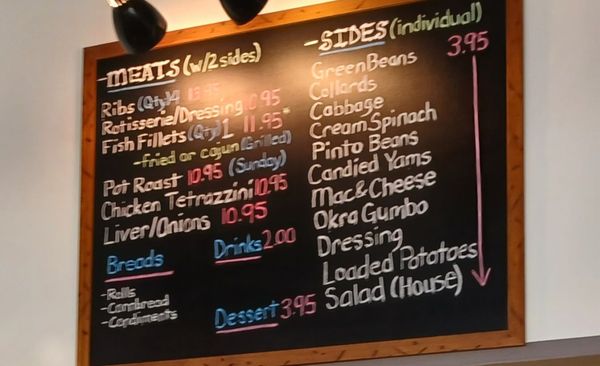 -MEATS (w/2 sides)
Ribs (Qty)4 13.95
Rotisserie/Dressing 10.95
Fish Fillets (Qty) 1 11.95*
-fried or cajun (Grilled)
Pot Roast 10.95 (Sunday)
Chicken Tetrazzini 10.95
Liver/Onions 10.95
Breads
-Rolls
-Cornbread
-Condiments
Drinks 2.00
Dessert 3.95
-SIDES (individual)
3.95
Green Beans
Collards
Cabbage
Cream Spinach
Pinto Beans
Candied Yams
Mac & Cheese
Okra Gumbo
Dressing
Loaded Potatoes
Salad (House)